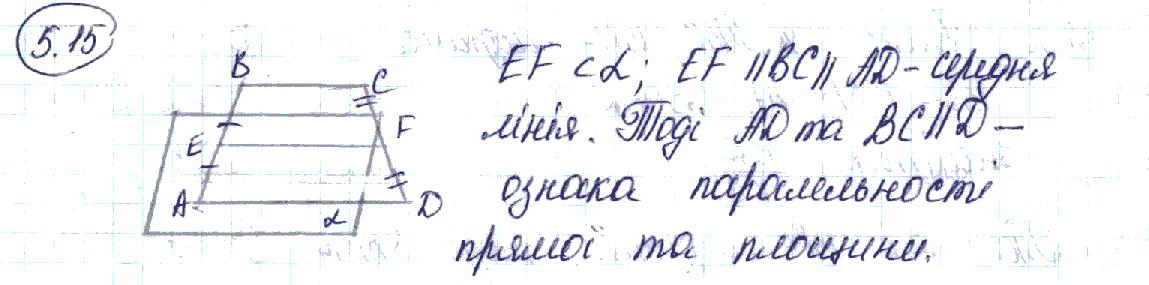 5.15
B
C
E
F
A
D
α
EF ⊂ α; EF || BC || AD - середня
лінія. Тоді AD та BC || D -
ознака паралельності
прямої та площини.